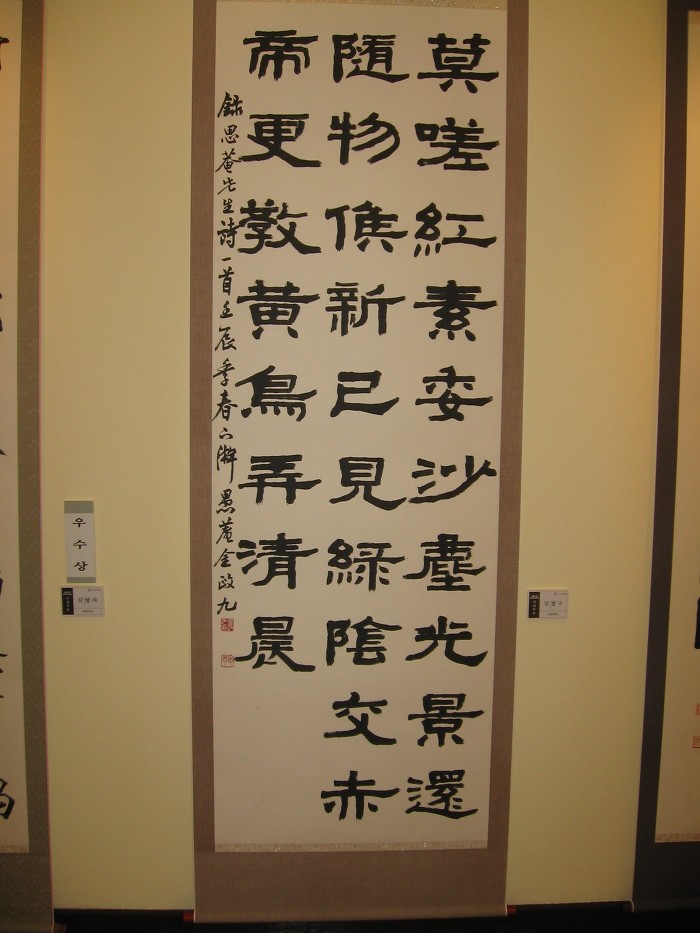 莫嗟紅素委沙塵光景還
隨物候新已見綠陰交赤
帝更教黃鳥弄清晨
錄思菴先生詩一首壬辰季春下澣愚菴金政九
우수상
김정구